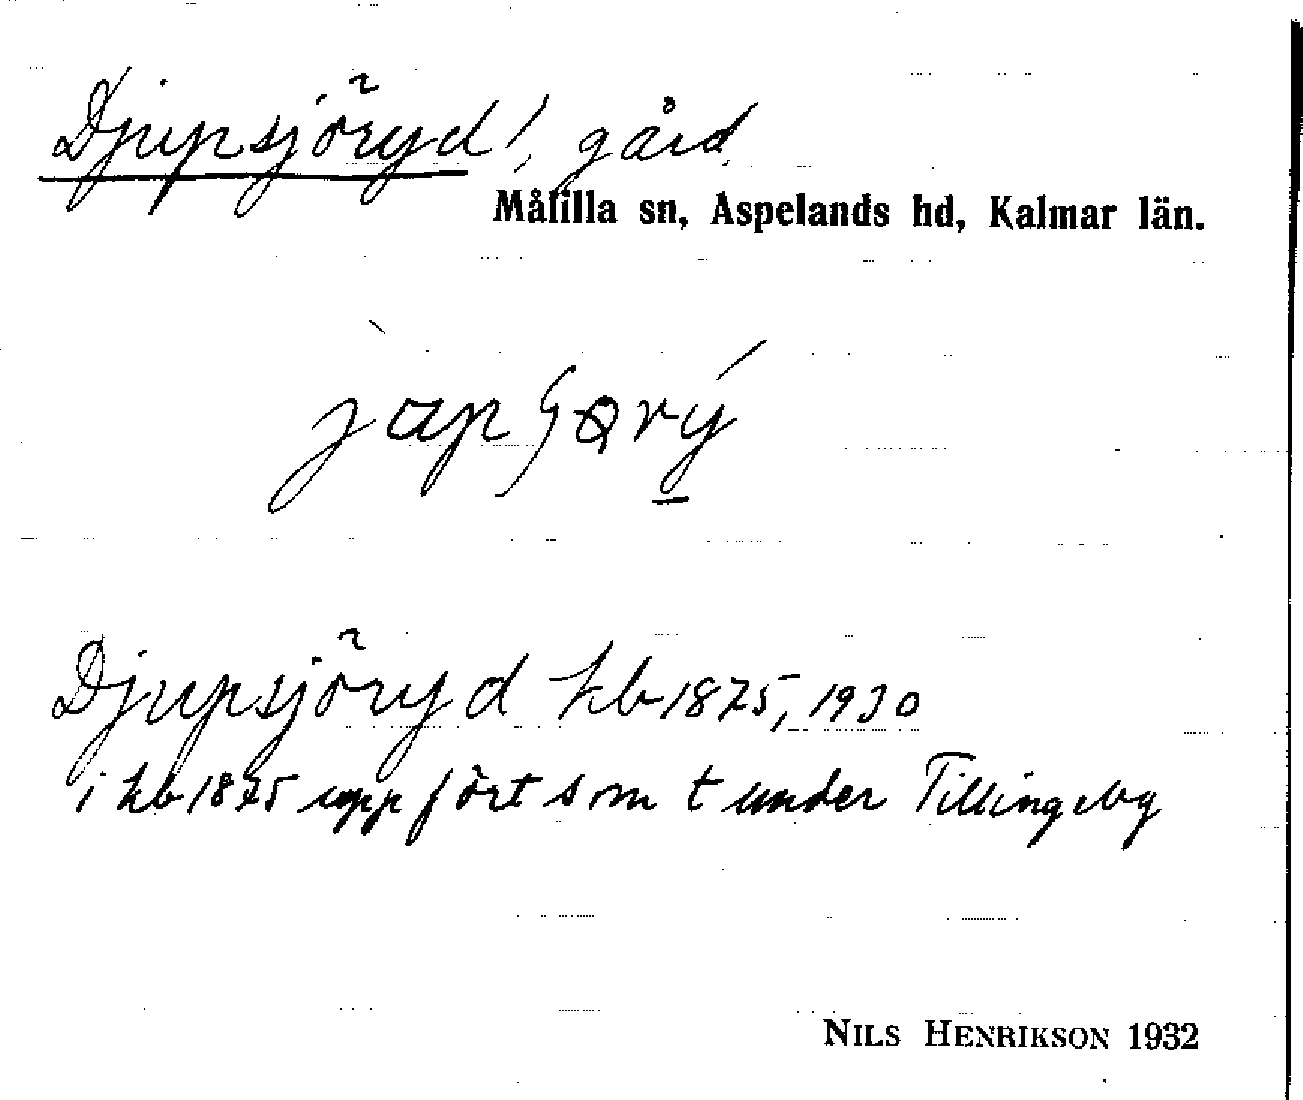 Djupsjöryd!, gård
Målilla sn, Aspelands hd, Kalmar län.
Djupsjöryd kb 1875, 1930
i kb 1875 uppfört som t under Tillingeby
NILS HENRIKSON 1932